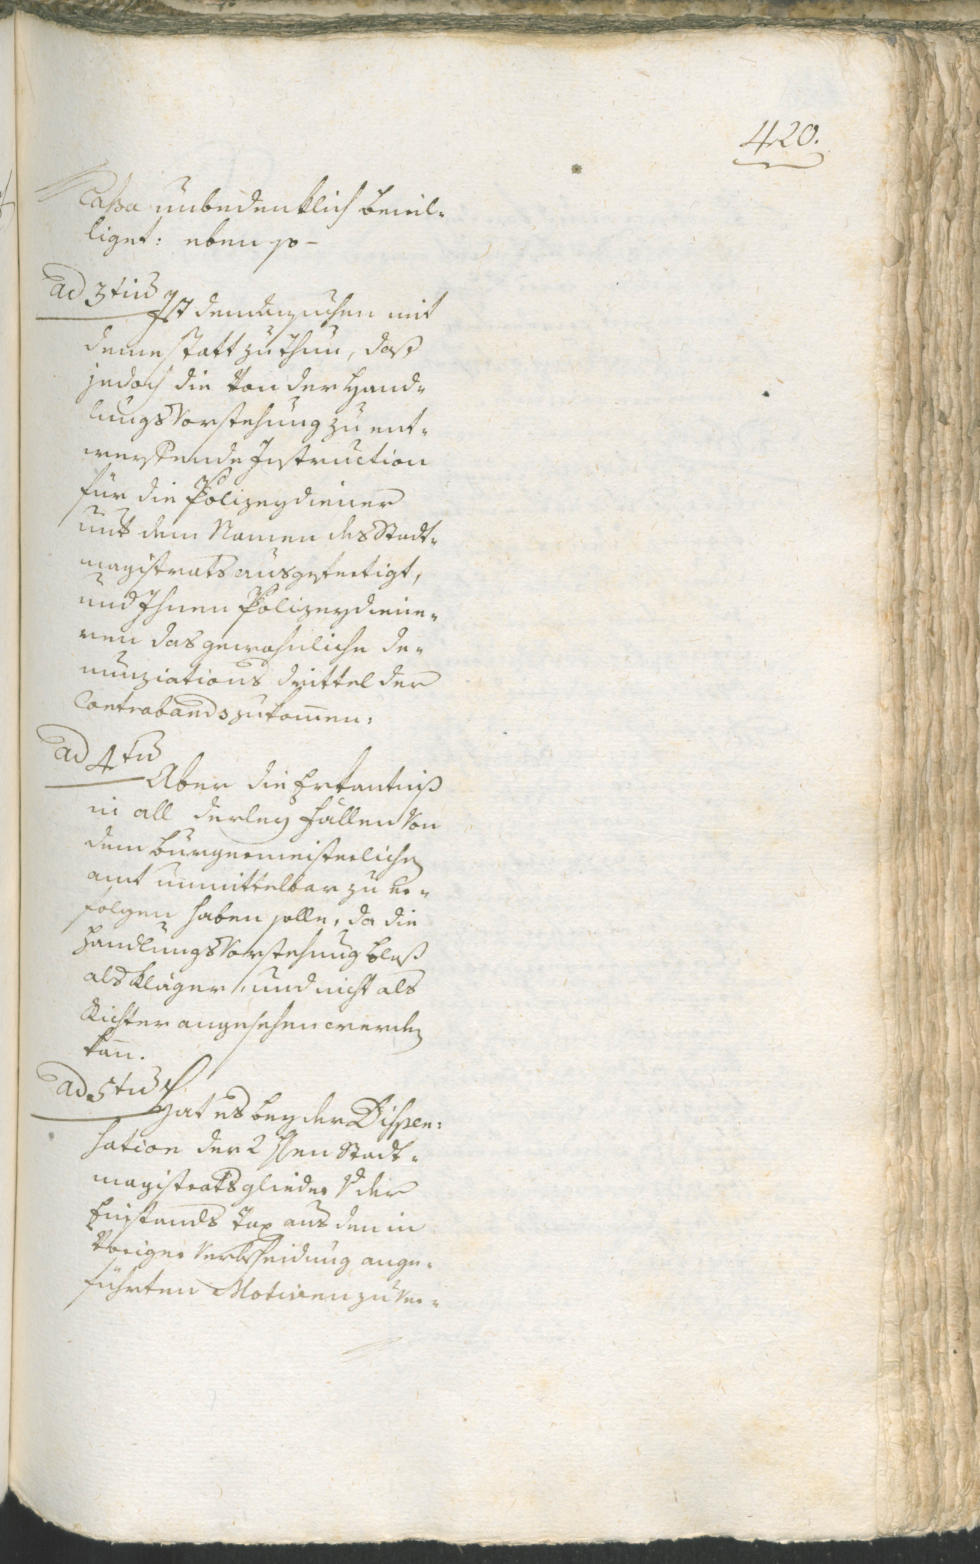 420.
Cassa unbedenklich bewil-
liget: eben so -
ad 3tiū
Ist dem Ansuchen mit
deme statt zu thun, daß
jedoch die von der Hand-
lungs Vorstehung zu ent-
werffende Instruction
für die Polizeydiener
unt dem Namen des Stadt-
magistrats ausgefertigt,
und Ihnen Polizeydiene-
ren das gewohnliche De-
nunziations drittel der
Contrabands zukom̄en:
ad 4tū
Aber die Erkantniß
in all derley fällen von
dem burgermeisterlichen
amt unmittelbar zu er-
folgen haben solle, da die
Handlungs Vorstehung bloß
als Kläger, und nicht als
Richter angesehen werden
kan̄.
ad 5tū
Hat es bey der Dispen:
sation der 2 Stadt-
magistrats glieder der
Einstands Tax aus den in
voriger Verbscheidung ange-
führten Motiven zu ver-